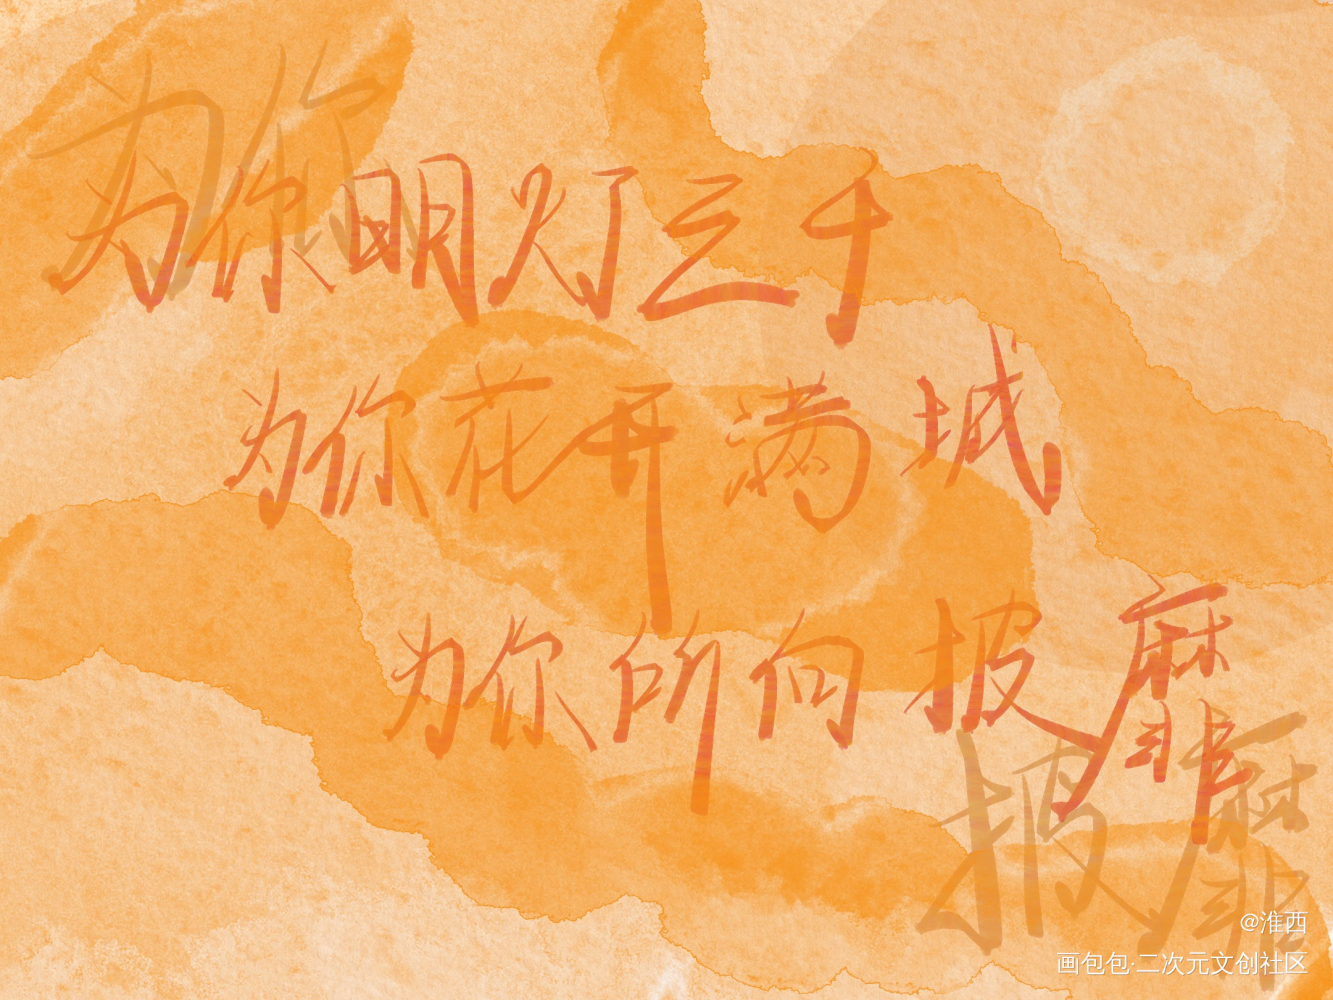 为你
为你明灯三千
为你花开满城
为你所向披靡
披靡
@淮西
画包包·二次元文创社区